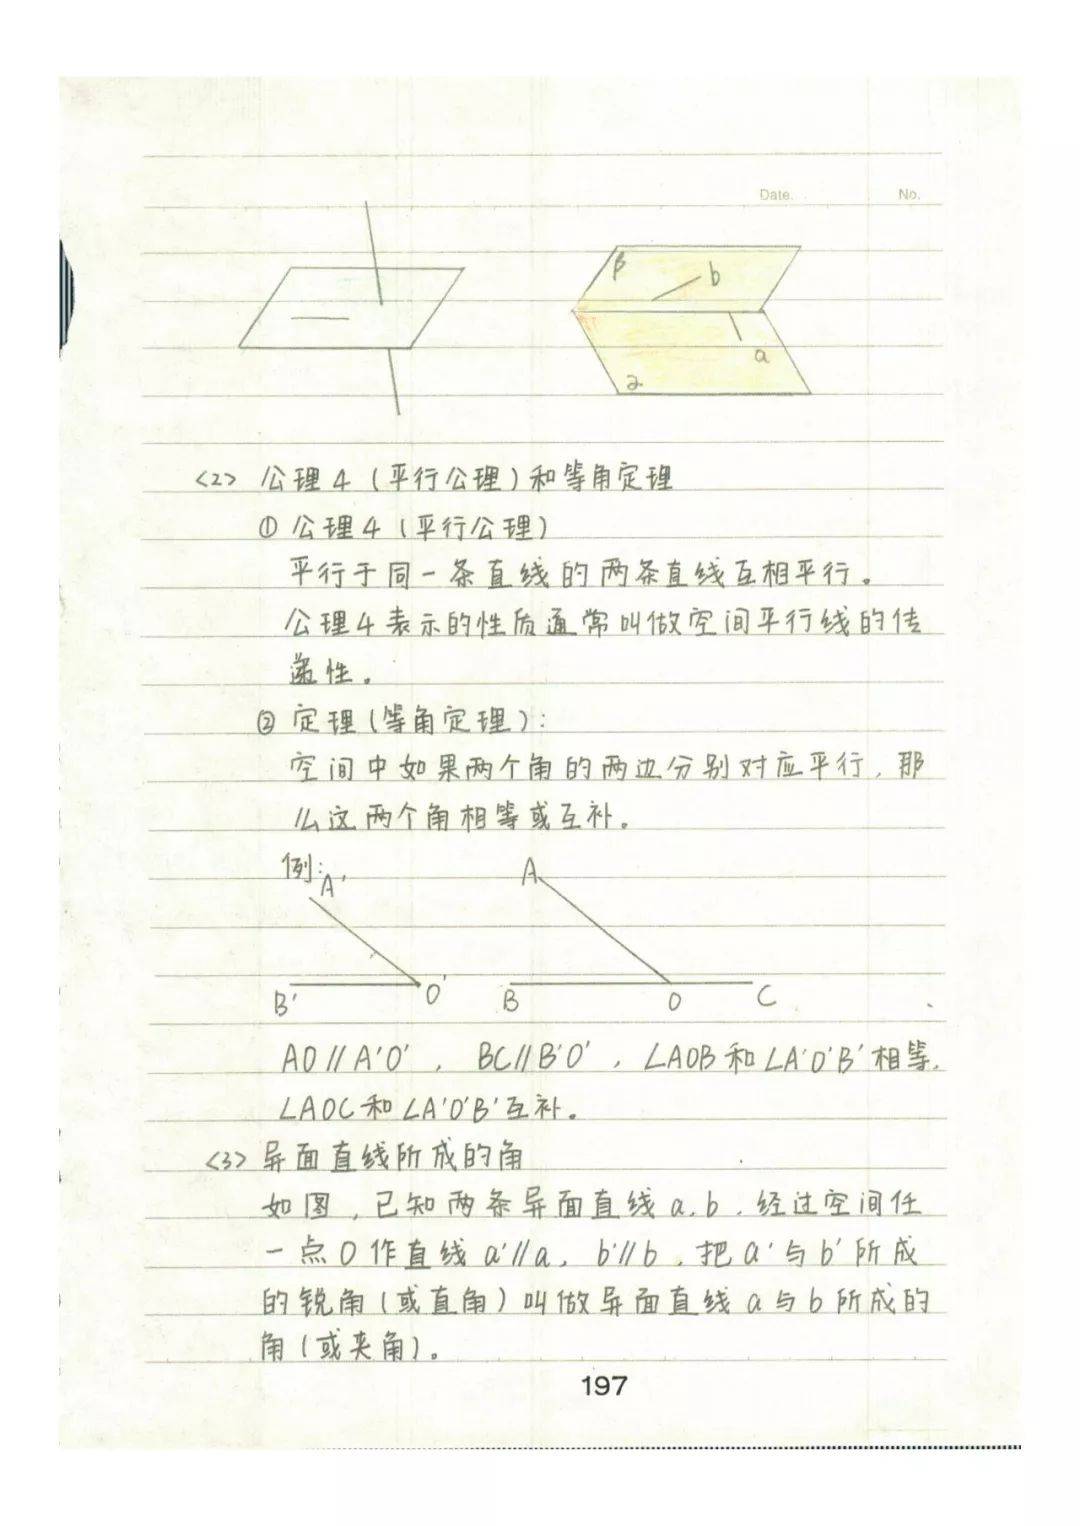 Date. No.
β b
a
2
<2> 公理4（平行公理）和等角定理
① 公理4（平行公理）
平行于同一条直线的两条直线互相平行。
公理4表示的性质通常叫做空间平行线的传
递性。
② 定理（等角定理）：
空间中如果两个角的两边分别对应平行，那
么这两个角相等或互补。
例：
A' A
B' O' B O C
AO∥A'O'，BC∥B'O'，∠AOB和∠A'O'B'相等，
∠AOC和∠A'O'B'互补。
<3> 异面直线所成的角
如图，已知两条异面直线a，b，经过空间任
一点O作直线a'∥a，b'∥b，把a'与b'所成
的锐角（或直角）叫做异面直线a与b所成的
角（或夹角）。
197